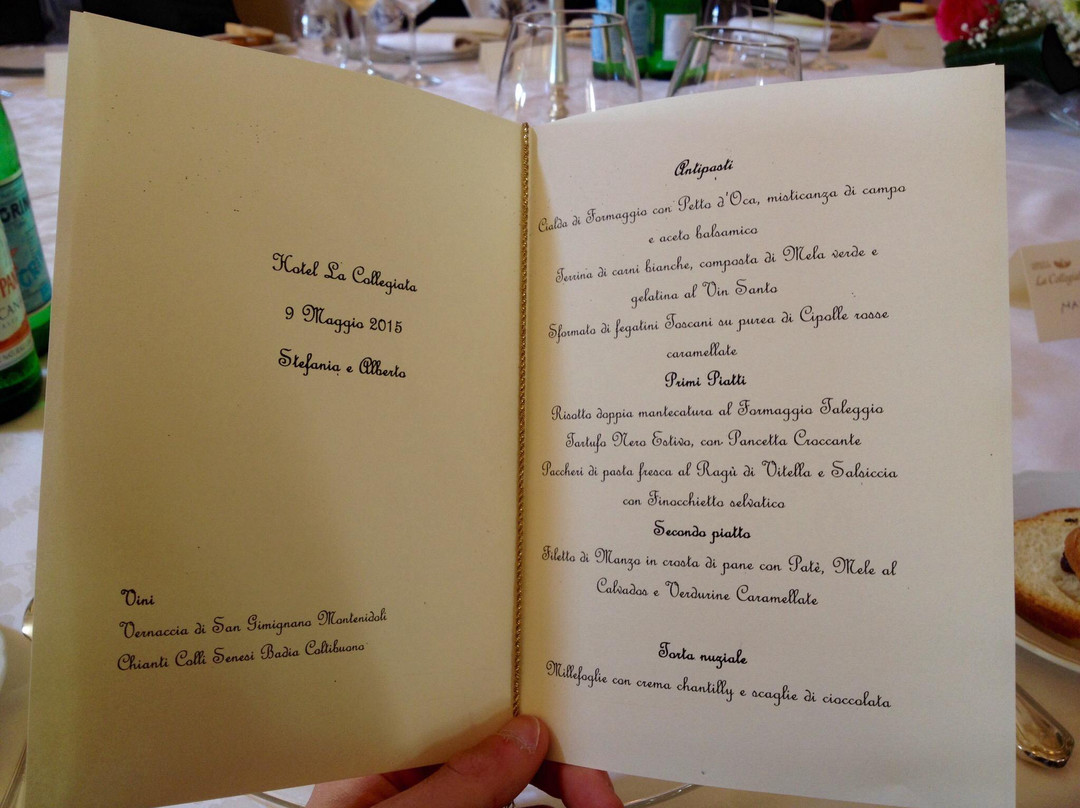 Hotel La Collegiata
9 Maggio 2015
Stefania e Alberto
Vini
Vernaccia di San Gimignano Montenidoli
Chianti Colli Senesi Badia Coltibuono
Antipasti
Cialda di Formaggio con Petto d'Oca, misticanza di campo
e aceto balsamico
Terrina di carni bianche, composta di Mela verde e
gelatina al Vin Santo
Sformato di fegatini Toscani su purea di Cipolle rosse
caramellate
Primi Piatti
Risotto doppia mantecatura al Formaggio Taleggio
Tartufo Nero Estivo, con Pancetta Croccante
Paccheri di pasta fresca al Ragù di Vitella e Salsiccia
con Finocchietto selvatico
Secondo piatto
Filetto di Manzo in crosta di pane con Patè, Mele al
Calvados e Verdurine Caramellate
Torta nuziale
Millefoglie con crema chantilly e scaglie di cioccolata
La Collegia